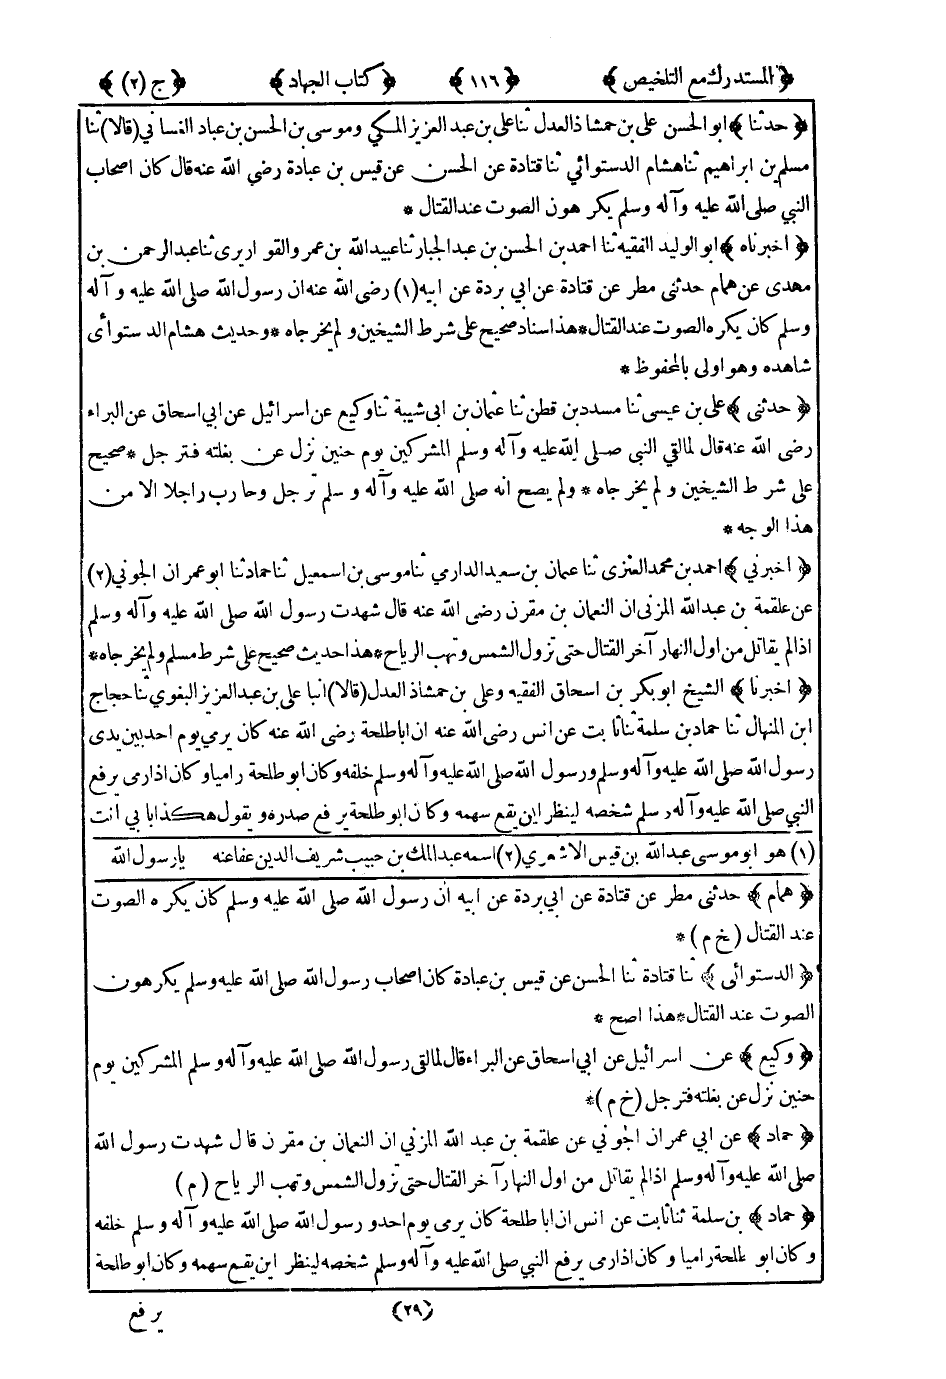 ﴿ المستدرك مع التلخيص ﴾ ﴿ ١١٦ ﴾ ﴿ كتاب الجهاد ﴾ ﴿ ج (٢) ﴾
﴿ حدثنا ﴾ ابو الحسن على بن حمشاذ العدل ثنا على بن عبد العزيز المكي وموسى بن الحسن بن عباد النسائي (قالا) ثنا
مسلم بن ابراهيم ثنا هشام الدستوائي ثنا قتادة عن الحسن عن قيس بن عبادة رضي الله عنه قال كان اصحاب
النبي صلى الله عليه وآله وسلم يكرهون الصوت عند القتال *
﴿ اخبرناه ﴾ ابو الوليد الفقيه ثنا احمد بن الحسن بن عبد الجبار ثنا عبيد الله بن عمر والقواريرى ثنا عبد الرحمن بن
مهدى عن همام حدثنى مطر عن قتادة عن ابي بردة عن ابيه (١) رضى الله عنه ان رسول الله صلى الله عليه وآله
وسلم كان يكره الصوت عند القتال * هذا اسناد صحيح على شرط الشيخين ولم يخرجاه * وحديث هشام الدستوأى
شاهده وهو اولى بالمحفوظ *
﴿ حدثنى ﴾ على بن عيسى ثنا مسدد بن قطن ثنا عثمان بن ابى شيبة ثنا وكيع عن اسرائيل عن ابي اسحاق عن البراء
رضى الله عنه قال لما لقي النبى صلى الله عليه وآله وسلم المشركين يوم حنين نزل عن بغلته فترجل * صحيح
على شرط الشيخين ولم يخرجاه * ولم يصح انه صلى الله عليه وآله وسلم ترجل وحارب راجلا الا من
هذا الوجه *
﴿ اخبرني ﴾ احمد بن محمد العنزى ثنا عثمان بن سعيد الدارمي ثنا موسى بن اسمعيل ثنا حماد ثنا ابو عمران الجوني (٢)
عن علقمة بن عبد الله المزنى ان النعمان بن مقرن رضى الله عنه قال شهدت رسول الله صلى الله عليه وسلم
اذا لم يقاتل من اول النهار آخر القتال حتى تزول الشمس وتهب الرياح * هذا حديث صحيح على شرط مسلم ولم يخرجاه *
﴿ اخبرنا ﴾ الشيخ ابو بكر بن اسحاق الفقيه وعلى بن حمشاذ العدل (قالا) انبا على بن عبد العزيز البغوي ثنا حجاج
ابن المنهال ثنا حماد بن سلمة ثنا ثابت عن انس رضى الله عنه ان ابا طلحة رضى الله عنه كان يرمي يوم احد بين يدى
رسول الله صلى الله عليه وآله وسلم ورسول الله صلى الله عليه وآله وسلم خلفه وكان ابو طلحة راميا وكان اذا رمى يرفع
النبي صلى الله عليه وآله وسلم شخصه لينظر اين يقع سهمه وكان ابو طلحة يرفع صدره ويقول هكذا بابي انت
(١) هو ابو موسى عبد الله بن قيس الاشعري (٢) اسمه عبد الملك بن حبيب شريف الدين عفا عنه يا رسول الله
﴿ همام ﴾ حدثنى مطر عن قتادة عن ابي بردة عن ابيه ان رسول الله صلى الله عليه وسلم كان يكره الصوت
عند القتال (خ م) *
﴿ الدستوائى ﴾ ثنا قتادة ثنا الحسن عن قيس بن عبادة كان اصحاب رسول الله صلى الله عليه وسلم يكرهون
الصوت عند القتال * هذا اصح *
﴿ وكيع ﴾ عن اسرائيل عن ابي اسحاق عن البراء قال لما لقى رسول الله صلى الله عليه وآله وسلم المشركين يوم
حنين نزل عن بغلته فترجل (خ م) *
﴿ حماد ﴾ عن ابي عمران الجوني عن علقمة بن عبد الله المزنى ان النعمان بن مقرن قال شهدت رسول الله
صلى الله عليه وآله وسلم اذا لم يقاتل من اول النهار آخر القتال حتى تزول الشمس وتهب الرياح (م)
﴿ حماد ﴾ بن سلمة ثنا ثابت عن انس ان ابا طلحة كان يرمى يوم احد ورسول الله صلى الله عليه وآله وسلم خلفه
وكان ابو طلحة راميا وكان اذا رمى يرفع النبي صلى الله عليه وآله وسلم شخصه لينظر اين يقع سهمه وكان ابو طلحة
(٢٩) يرفع